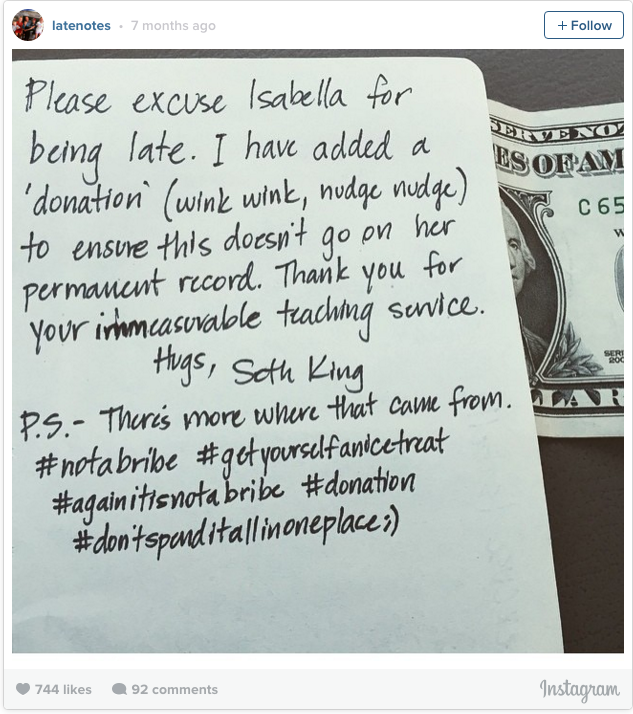 latenotes • 7 months ago
+ Follow
Please excuse Isabella for
being late. I have added a
'donation' (wink wink, nudge nudge)
to ensure this doesn't go on her
permanent record. Thank you for
your immeasurable teaching service.
Hugs, Seth King
P.S.- There's more where that came from.
#notabribe #getyourselfanicetreat
#againitisnotabribe #donation
#don'tspenditallinoneplace;)
ES OF AM
C 65
744 likes 92 comments
Instagram